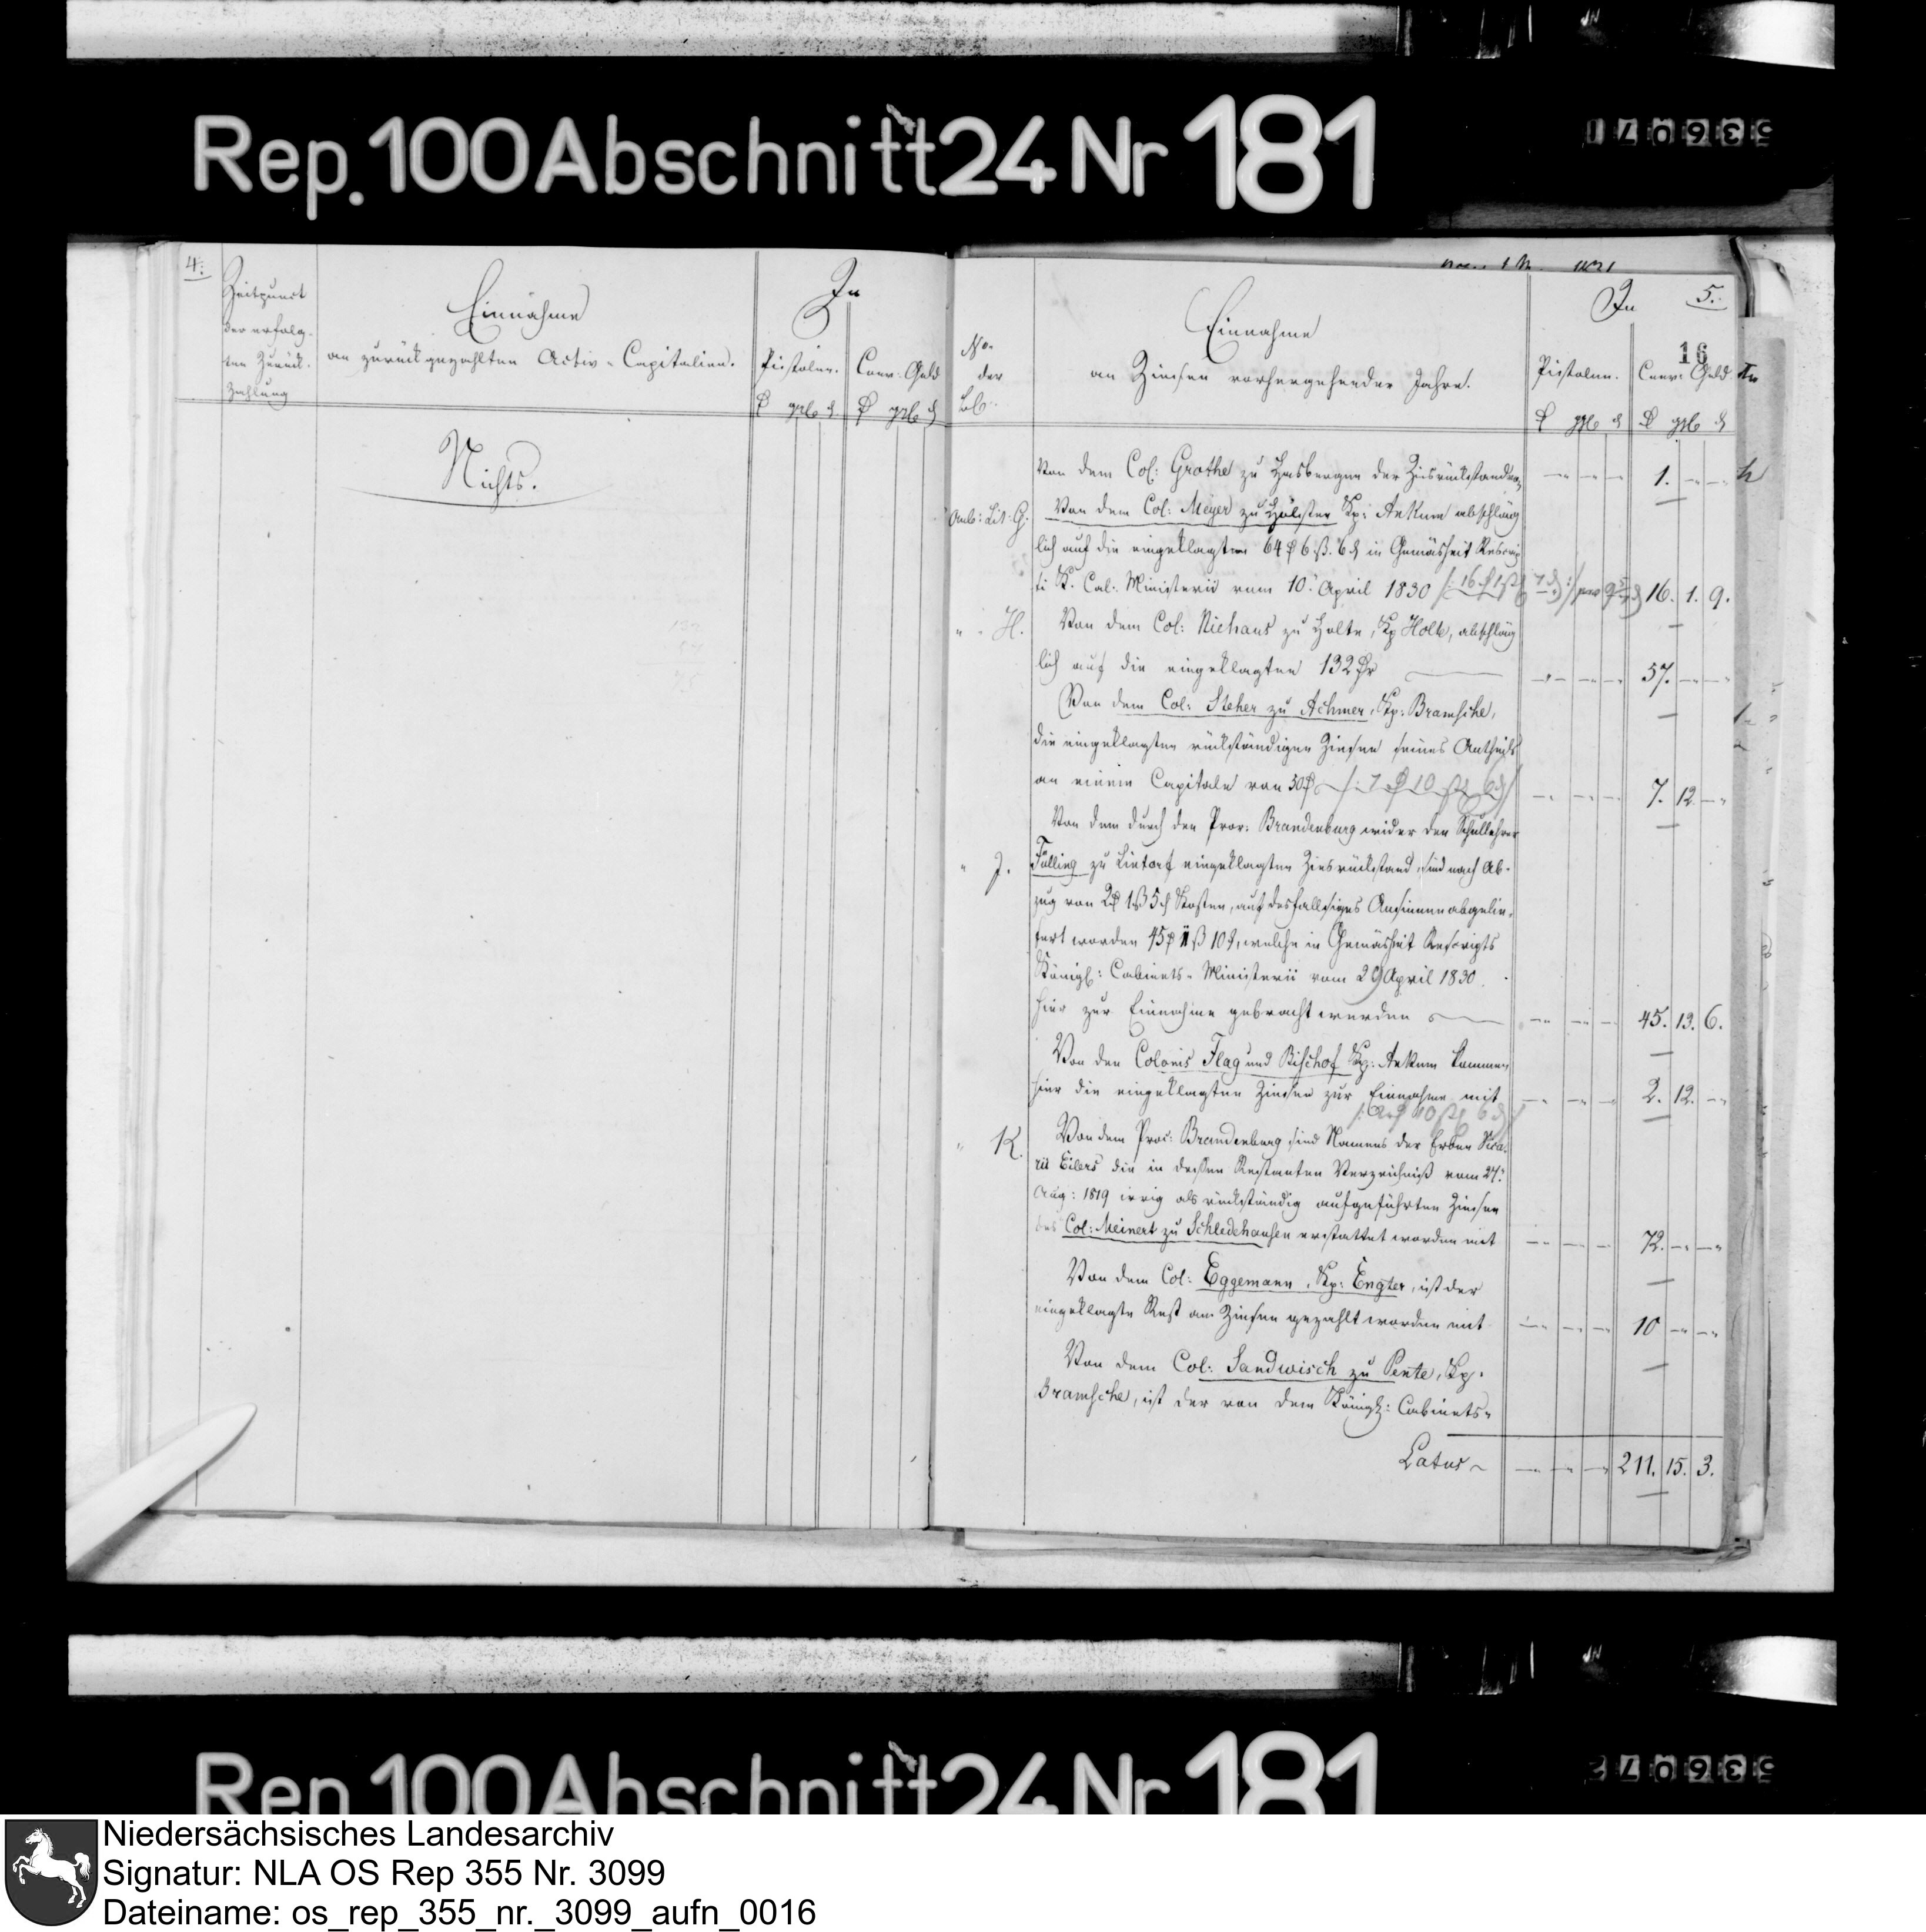 Rep. 100 Abschnitt 24 Nr 181
536071
4.
Zeitpunct
der erfolg-
ten Zurück-
zahlung
Einnahme
an zurückgezahlten Activ-Capitalien.
In
Pistolen. Conv. Geld
₰ ggl ₰ ₰ ggl ₰
Nichts.
5.
16
No.
der
Einnahme
an Zinsen vorhergehender Jahre.
In
Pistolen. Conv. Geld
Von dem Col: Grothe zu Hasbergen der Zinsrückstand 1.
Anl: Lit: G. Von dem Col: Meyer zu Kp: Ankum abschläg
lich auf die eingeklagten 64 6 ß. 6 ₰ in Gemäsheit Rescrip
ti K. Cab. Ministerii vom 10. April 1830 16. 1. 9.
" " H. Von dem Col: Niehaus zu Holte, Kp Holte, abschläg
lich auf die eingeklagten 132 57.
Von dem Col: Steher zu Achmer, Kp: Bramsche,
die eingeklagten rückständigen Zinsen seines Antheils
an einem Capitale von 50 7. 12.
Von dem durch den Proc: Brandenburg wider den Schullehrer
" J. Fülling zu Lintorf eingeklagten Zinsrückstand, sind nach Ab-
zug von 2 1 ß 5 ₰ Kosten, auf desfallsiges Ansinnen abgelie-
fert worden 45 11 ß 10 ₰, welche in Gemäsheit Rescripts
Königl: Cabinets-Ministerii vom 29 April 1830.
hier zur Einnahme gebracht werden 45. 13. 6.
Von den Colonis Flag und Bischof Kp: Ankum kommen
hier die eingeklagten Zinsen zur Einnahme mit 2. 12.
" K. Von dem Proc: Brandenburg sind Namens der Erben Vica-
rii Eilers die in dessen Restanten Verzeichniß vom 27.
Aug: 1819 irrig als rückständig aufgeführten Zinsen
des Col: Meinert zu Schledehausen erstattet worden mit 72.
Von dem Col: Eggemann, Kp: Engter, ist der
eingeklagte Rest an Zinsen gezahlt worden mit 10
Von dem Col: Sandwisch zu Pente, Kp.
Bramsche, ist der von dem Königl: Cabinets-
Latus 211. 15. 3.
Rep. 100 Abschnitt 24 Nr 181
536072
Niedersächsisches Landesarchiv
Signatur: NLA OS Rep 355 Nr. 3099
Dateiname: os_rep_355_nr._3099_aufn_0016